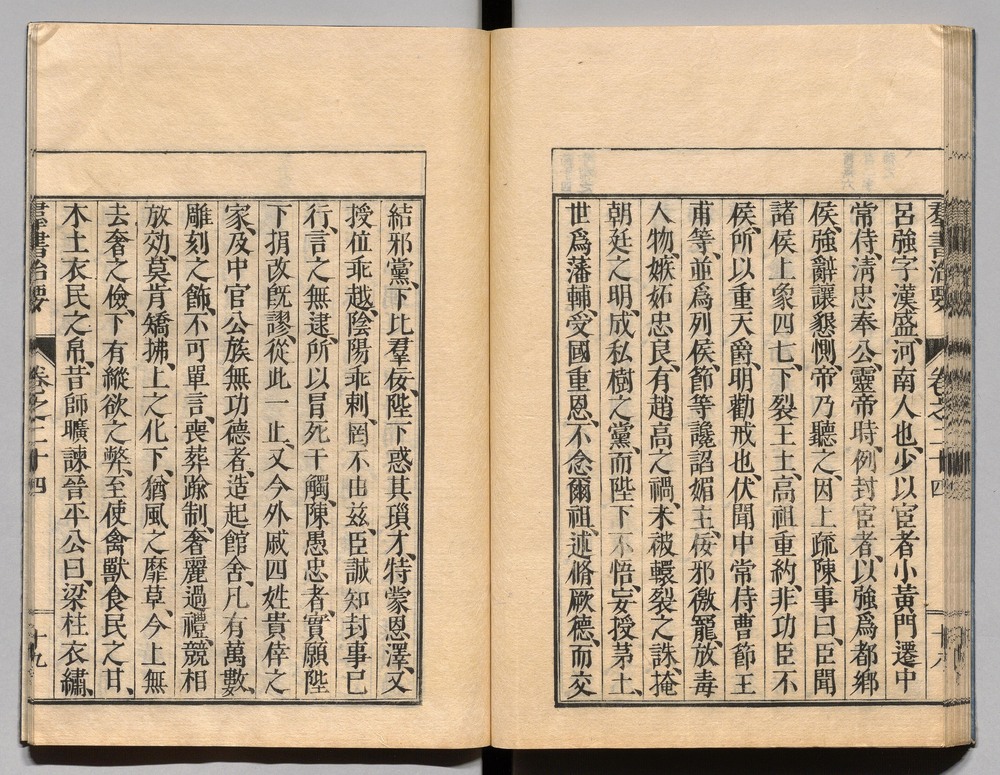 羣書治要 卷之二十四 十八
呂強字漢盛、河南人也、少以宦者小黃門遷中
常侍、淸忠奉公、靈帝時、例封宦者、以強爲都鄉
侯、強辭讓懇惻、帝乃聽之、因上疏陳事曰、臣聞
諸侯上象四七、下裂王土、高祖重約、非功臣不
侯、所以重天爵、明勸戒也、伏聞中常侍曹節王
甫等、並爲列侯、節等讒諂媚主、佞邪徼寵、放毒
人物、嫉妬忠良、有趙高之禍、未被轘裂之誅、掩
朝廷之明、成私樹之黨、而陛下不悟、妄授茅土、
世爲藩輔、受國重恩、不念爾祖、述脩厥德、而交
結邪黨、下比羣佞、陛下惑其瑣才、特蒙恩澤、又
授位乖越、陰陽乖剌、罔不由茲、臣誠知封事已
行、言之無逮、所以冒死干觸、陳愚忠者、實願陛
下捐改既謬、從此一止、又今外戚四姓貴倖之
家、及中官公族無功德者、造起館舍、凡有萬數、
雕刻之飾、不可單言、喪葬踰制、奢麗過禮、競相
放効、莫肯矯拂、上之化下、猶風之靡草、今上無
去奢之儉、下有縱欲之弊、至使禽獸食民之甘、
木土衣民之帛、昔師曠諫晉平公曰、梁柱衣繡、
羣書治要 卷之二十四 十九